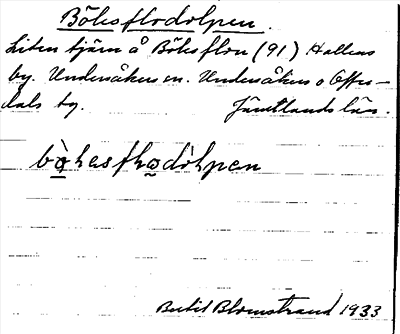 Bölesflodölpen.
Liten tjärn å Bölesflon (91) Hallens
by. Undersåkers sn. Undersåkers o Offer-
dals tg. Jämtlands län.
bo̱lesflo̱dölpen
Bertil Blomstrand 1933